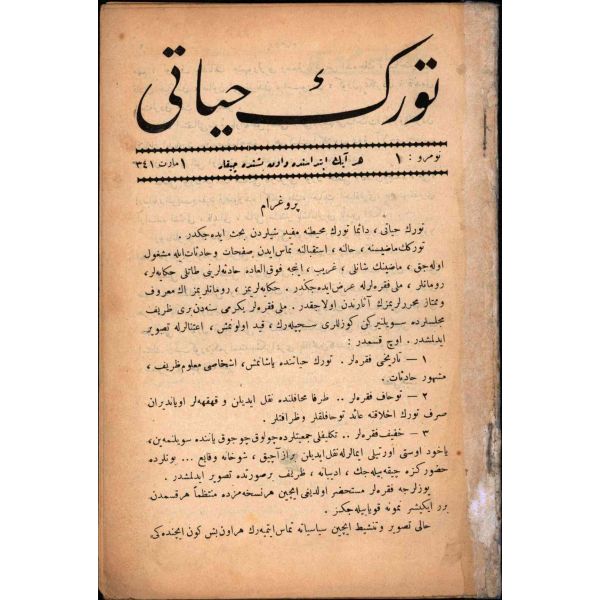 تورك حیاتی
نومرو : ١ هر آیك ابتداسنده و اون بشنده چیقار ١ مارت ٣٤١
پروغرام
تورك حیاتی ، دائما تورك محیطنه مفید شیلردن بحث ایده جكدر .
توركك ماضیسنه ، حالنه ، استقبالنه تماس ایدن صفحات و حادثات ایله مشغول
اوله جق ، ماضینك شانلی ، غریب ، اینجه فوق العاده حادثه لرینی طاتلی حكایه لر،
رومانلر ، ملی فقره لرله عرض ایده جكدر . حكایه لریمز ، رومانلریمز اك معروف
و ممتاز محررلریمزك آثارندن اولاجقدر . ملی فقره لر یكرمی سنه دن بری ظریف
مجلسلرده سویلنیركن كوزللری سچیله رك ، قید اولونمش ، اعتنالرله تصویر
ایدلمشدر . اوچ قسمدر :
١ — تاریخی فقره لر . تورك حیاتنده یاشانمش ، اشخاصی معلوم ظریف ،
مشهور حادثات .
٢ — توحاف فقره لر .. ظرفا محافلنده نقل ایدیلن و قهقهه لر اویاندیران
صرف تورك اخلاقنه عائد توحافلقلر و ظرافتلر .
٣ — خفیف فقره لر .. تكلیفلی جمعیتلرده چولوق چوجوق یاننده سویلنمه ین،
یاخود اوستی اورتیلی ایمالرله نقل ایدیلن براز آچیق ، شوخانه وقایع ... بونلرده
حضور كزه چیقه بیله جك ، ادیبانه ، ظریف برصورتده تصویر ایدلمشدر .
یوزلرجه فقره لر مستحضر اولدیغی ایچین هر نسخه مزده منتظماً هر قسمدن
برر ایكیشر نمونه قویابیله جكز .
حالی تصویر و تنشیط ایچین سیاسیاته تماس ایتمیه رك هر اون بش كون ایچنده كی